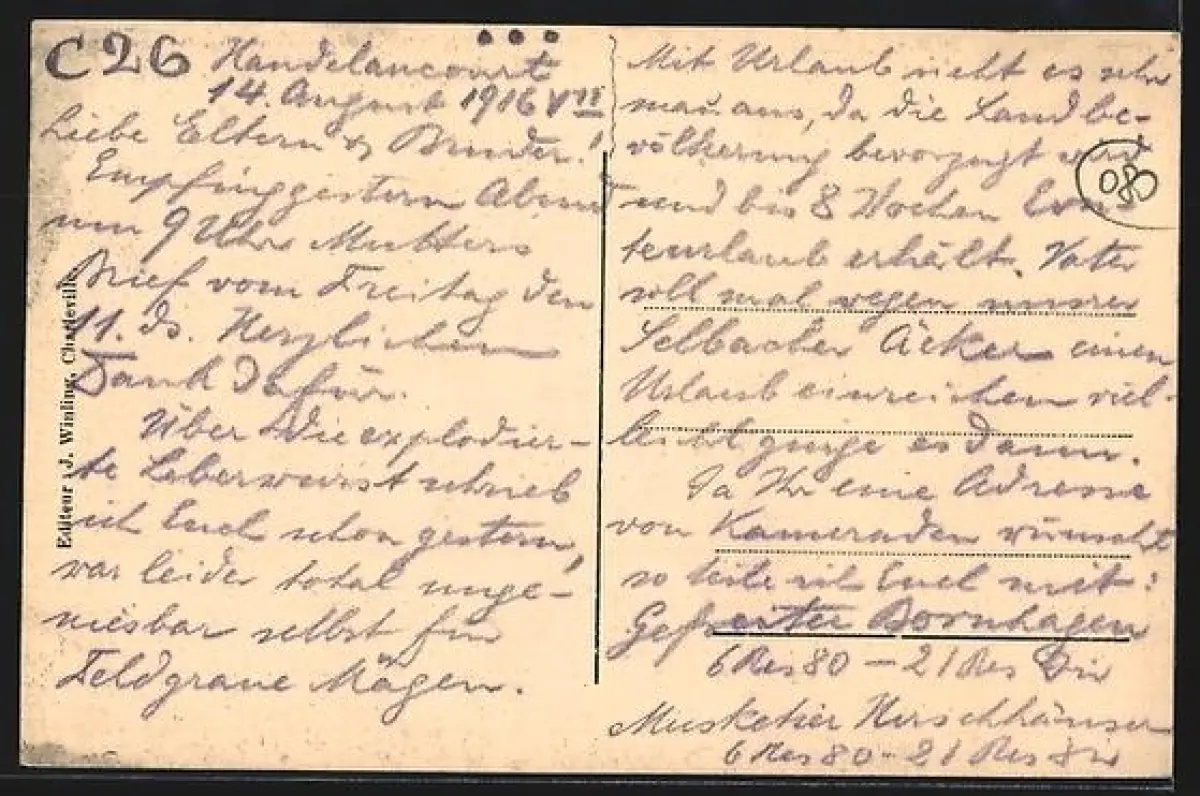 C26 Handelancourt
14. August 1916 VII
Liebe Eltern & Bruder!
Empfing gestern Abend
um 9 Uhr Mutters
Brief vom Freitag den
11. ds. Herzlichen
Dank dafür.
Über die explodier-
te Leberwurst schrieb
ich Euch schon gestern,
war leider total unge-
niesbar selbst für
Feldgraue Mägen.
Editeur : J. Winling, Charleville
Mit Urlaub sieht es sehr
mau aus, da die Landbe-
völkerung bevorzugt wird
080
und bis 8 Wochen Ern-
teurlaub erhält. Vater
soll mal wegen unsrer
Selbacher Äcker einen
Urlaub einreichen viel-
leicht ginge es dann.
Da Ihr eine Adresse
von Kameraden wünscht
so teile ich Euch mit:
Gefreiter Bornhagen
6 Res 80 – 21 Res Div
Musketier Hirschhäuser
6 Res 80 - 21 Res Div